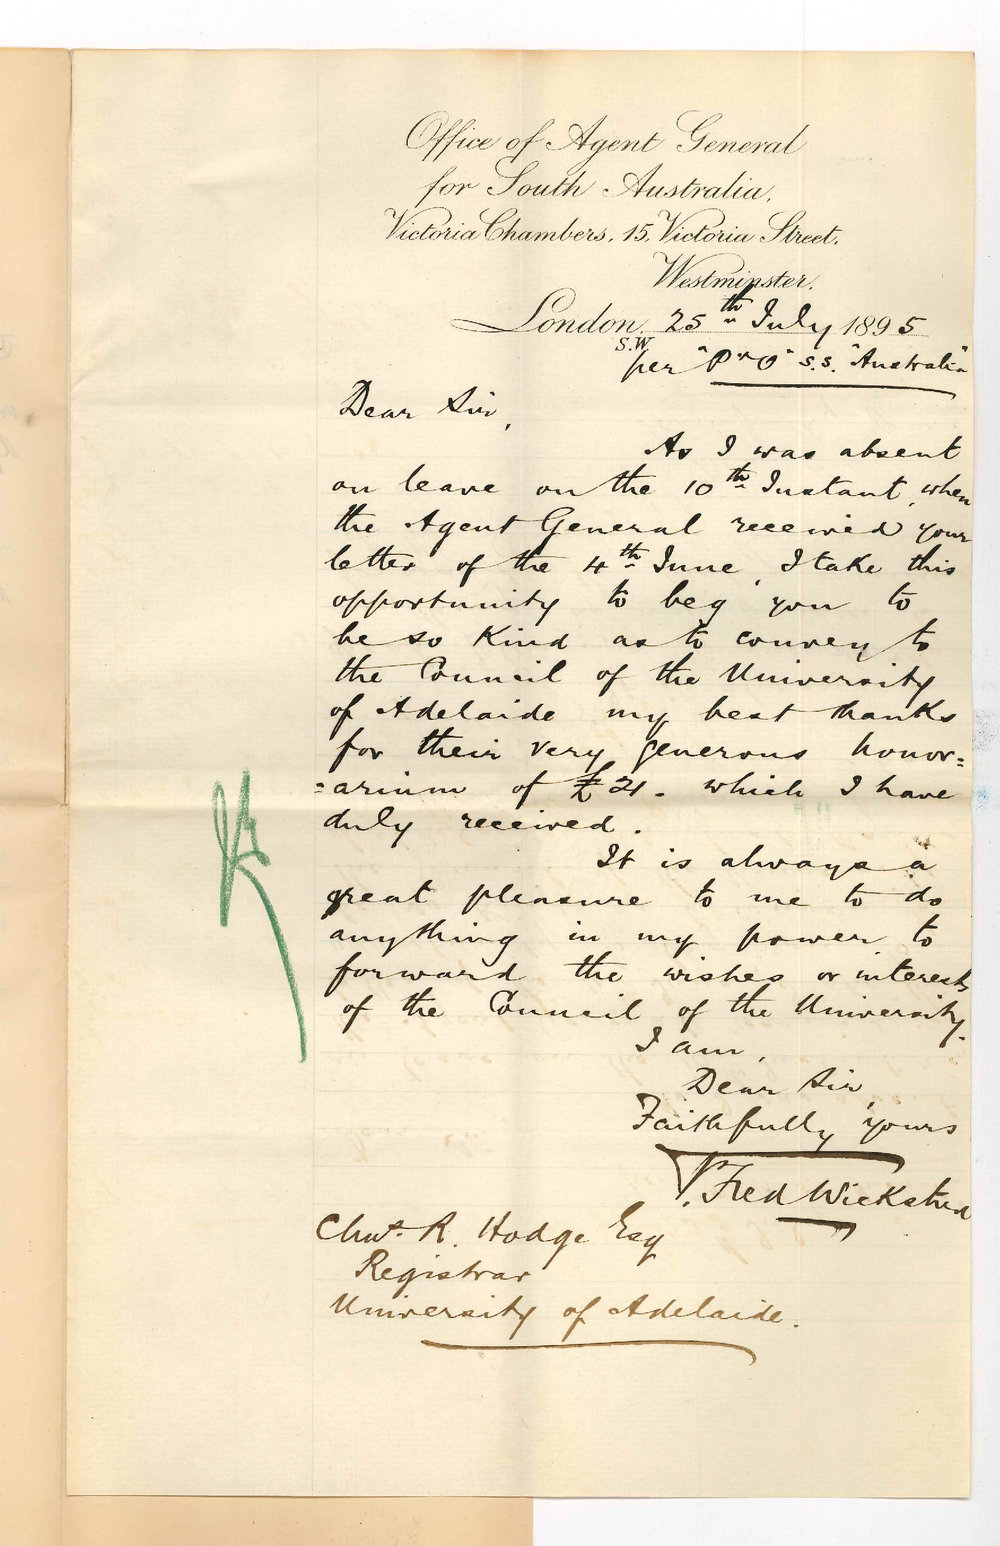 Office of Agent General
for South Australia,
Victoria Chambers, 15, Victoria Street,
Westminster,
London, 25th July 1895
S.W.
per "P & O" s.s. "Australia"
Dear Sir,
As I was absent
on leave on the 10th Instant, when
the Agent General received your
letter of the 4th June, I take this
opportunity to beg you to
be so kind as to convey to
the Council of the University
of Adelaide my best thanks
for their very generous honor=
=arium of £21. which I have
duly received.
It is always a
great pleasure to me to do
anything in my power to
forward the wishes or interests
of the Council of the University.
I am,
Dear Sir,
Faithfully yours
Fred Wicksteed
Chas. R. Hodge Esq
Registrar
University of Adelaide.